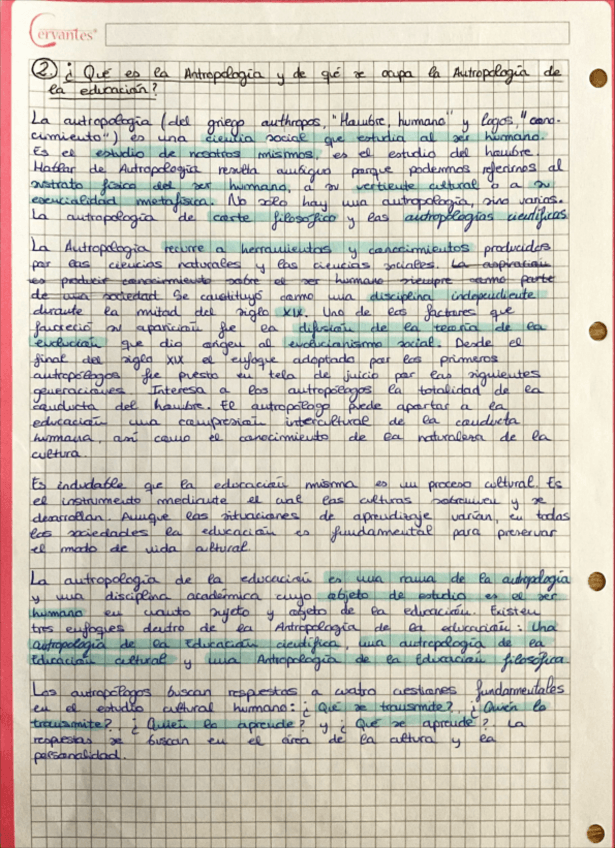 Cervantes
2. ¿Qué es la Antropología y de qué se ocupa la Antropología de
la educación?
La antropología (del griego anthropos, "Hombre, humano" y logos, "cono-
cimiento") es una ciencia social que estudia al ser humano.
Es el estudio de nosotros mismos, es el estudio del hombre.
Hablar de Antropología resulta ambiguo porque podemos referirnos al
sustrato físico del ser humano, a su vertiente cultural o a su
esencialidad metafísica. No sólo hay una antropología, sino varias.
La antropología de corte filosófico y las antropologías científicas
La Antropología recurre a herramientas y conocimientos producidos
por las ciencias naturales y las ciencias sociales. La aspiración
es producir conocimiento sobre el ser humano siempre como parte
de una sociedad Se constituyó como una disciplina independiente
durante la mitad del siglo XIX. Uno de los factores que
favoreció su aparición fue la difusión de la teoría de la
evolución que dio origen al evolucionismo social. Desde el
final del siglo XIX el enfoque adoptado por los primeros
antropólogos fue puesto en tela de juicio por las siguientes
generaciones. Interesa a los antropólogos la totalidad de la
conducta del hombre. El antropólogo puede aportar a la
educación una comprensión intercultural de la conducta
humana, así como el conocimiento de la naturaleza de la
cultura.
Es indudable que la educación misma es un proceso cultural. Es
el instrumento mediante el cual las culturas sobreviven y se
desarrollan. Aunque las situaciones de aprendizaje varían, en todas
las sociedades la educación es fundamental para preservar
el modo de vida cultural.
La antropología de la educación es una rama de la antropología
y una disciplina académica cuyo objeto de estudio es el ser
humano en cuanto sujeto y objeto de la educación. Existen
tres enfoques dentro de la Antropología de la educación: Una
antropología de la Educación científica, una antropología de la
Educación cultural y una Antropología de la Educación filosófica.
Los antropólogos buscan respuestas a cuatro cuestiones fundamentales
en el estudio cultural humano: ¿Qué se transmite?, ¿Quién lo
transmite? ¿Quién lo aprende? y ¿Qué se aprende? La
respuestas se buscan en el área de la cultura y la
personalidad.